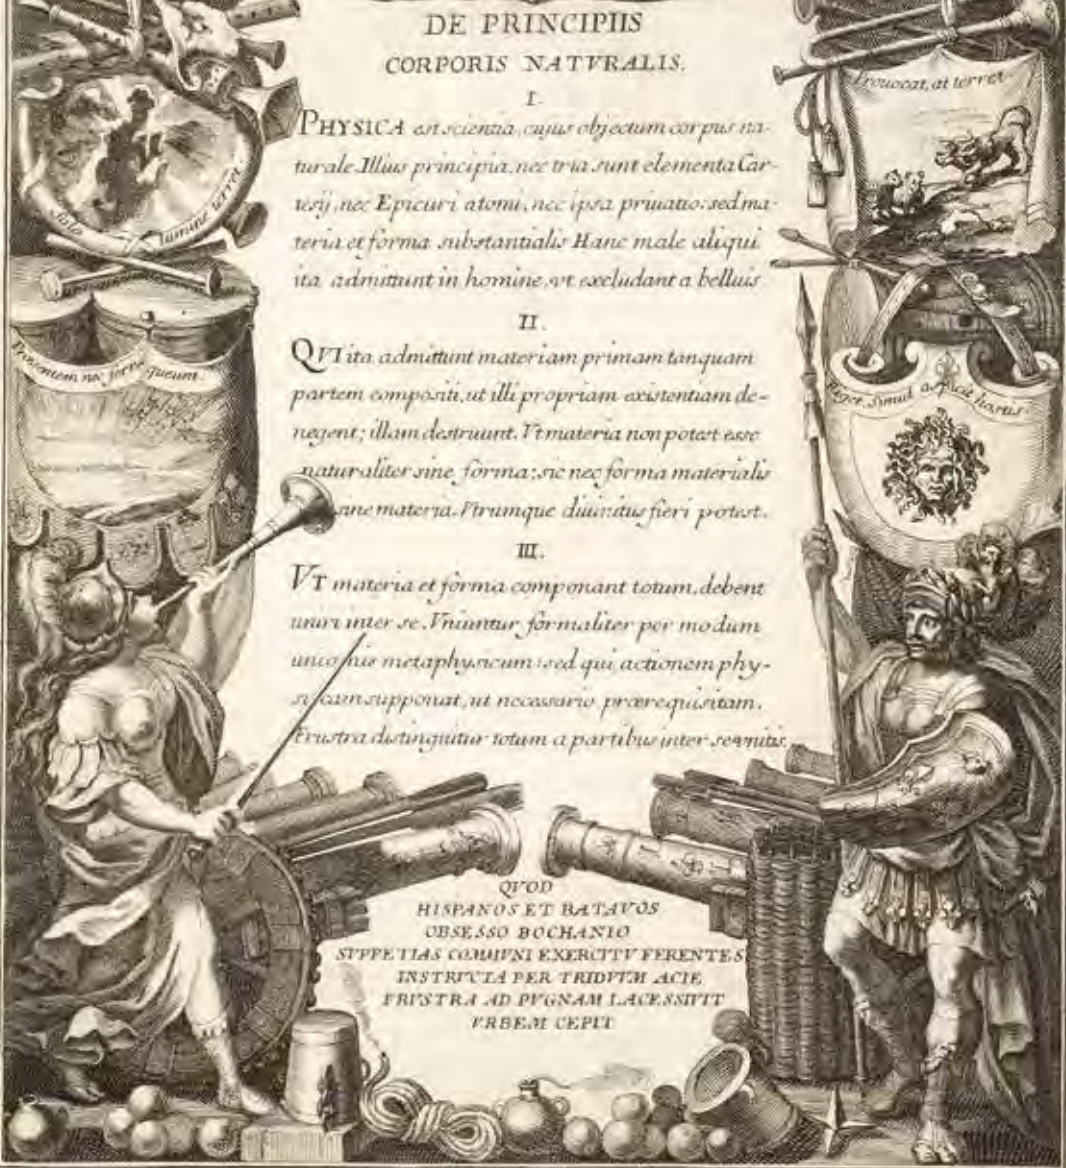 DE PRINCIPIIS
CORPORIS NATVRALIS.
I.
PHYSICA est scientia, cujus objectum corpus na-
turale. Illius principia, nec tria sunt elementa Car-
tesij, nec Epicuri atomi, nec ipsa priuatio: sed ma-
teria et forma substantialis. Hanc male aliqui
ita admittunt in homine, vt excludant a belluis.
II.
QVI ita admittunt materiam primam tanquam
partem compositi, ut illi propriam existentiam de-
negent; illam destruunt. Vt materia non potest esse
naturaliter sine forma; sic nec forma materialis
sine materia. Vtrumque diuinitus fieri potest.
III.
VT materia et forma componant totum, debent
uniri inter se. Vniuntur formaliter per modum
unionis metaphysicum: sed qui actionem phy-
sicam supponat, ut necessario præerequisitam.
Frustra distinguitur totum a partibus inter se vnitis.
QVOD
HISPANOS ET BATAVOS
OBSESSO BOCHANIO
SVPPETIAS COMMVNI EXERCITV FERENTES
INSTRVCTA PER TRIDVVM ACIE
FRVSTRA AD PVGNAM LACESSIVIT
VRBEM CEPIT
Solo lumine terret
Prouocat, at terret.
nec ferre queunt.
Piget. Simul aspicit hostis